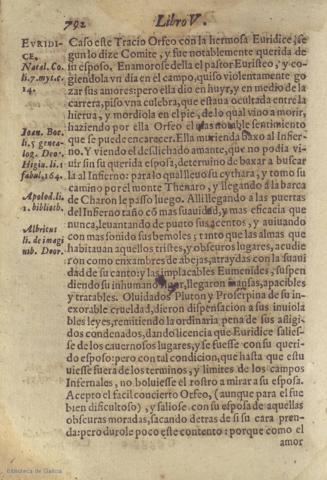 792 Libro V.
EVRIDI-
CE.
Natal. Co.
li.7. myt. c.
14.
Ioan. Boc.
li. 5. genea-
log. Deor.
Higin. li. 1
fabul. 164.
Apolod. li.
1. biblioth.
Albricus
li. de imagi
nib. Deor.
Caso este Tracio Orfeo con la hermosa Euridice, se
gun lo dize Comite, y fue notablemente querida de
su esposo. Enamorose della el pastor Euristeo, y co-
giendola vn dia en el campo, quiso violentamente go
zar sus amores: pero ella dio en huyr, y en medio de la
carrera, piso vna culebra, que estaua ocultada entre la
hierua, y mordiola en el pie, de lo qual vino a morir,
haziendo por ella Orfeo el mas notable sentimiento
que se puede encarecer. Ella nueua baxo al Infier-
no. Y viendo el desdichado amante, que no podia vi-
uir sin su querida esposa, determino de baxar a buscar
la al Infierno: para lo qual lleuo su cythara, y tomo su
camino por el monte Thenaro, y llegando à la barca
de Charon le passo luego. Alli llegando a las puertas
del Infierno taño cõ mas suauidad, y mas eficacia que
nunca, leuantando de punto sus acentos, y auiuando
con mas sonido sus bemoles; tanto que las almas que
habitauan aquellos tristes, y obscuros lugares, acudie
ron como enxambres de abejas, atraydas con la suaui
dad de su canto: y las implacables Eumenides, suspen
diendo su inhumano llegaron mansas, apacibles
y tratables. Oluidados Pluton y Proserpina de su in-
exorable crueldad, dieron dispensacion a sus inuiola
bles leyes, remitiendo la ordinaria pena de sus astigi-
dos condenados, dando licencia que Euridice salies-
se de los cauernosos lugares, y se fuesse con su queri-
do esposo: pero con tal condicion, que hasta que estu
uiesse fuera de los terminos, y limites de los campos
Infernales, no boluiesse el rostro a mirar a su esposa.
Acepto el facil concierto Orfeo, (aunque para el fue
bien dificultoso) y saliose con su esposa de aquellas
obscuras moradas, sacando detras de si su cara pren-
da: pero durole poco este contento: porque como el
amor
Biblioteca de Galicia